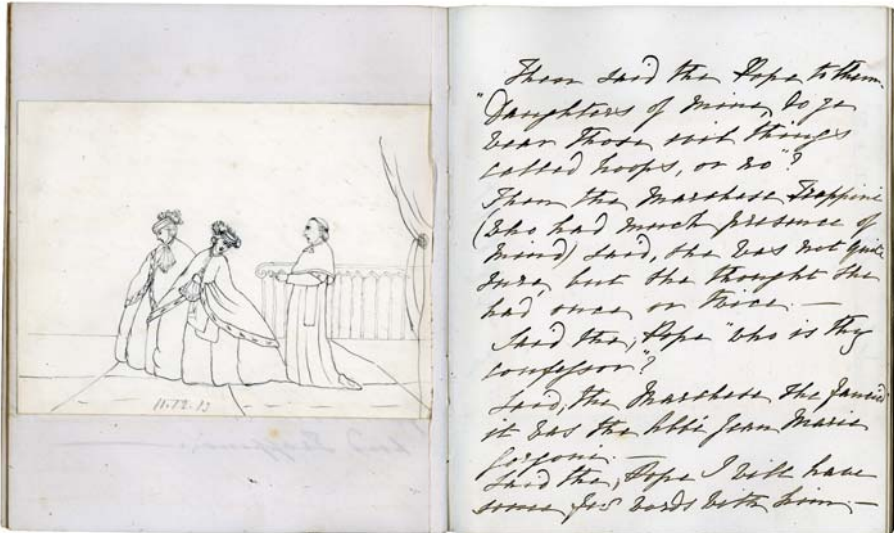 11.12.13
Then said the Pope to them
"Daughters of mine, do ye
wear those evil things
called hoops, or no"?
Then the Marchese
(who had much presence of
mind) said, she was not quite
sure, but she thought she
had once or twice.—
Said the, Pope "who is thy
confessor"?
Said, the Marchese she fancied
it was the Abbé Jean Marie
Gorgoni.—
Said the, Pope I will have
some few words with him—